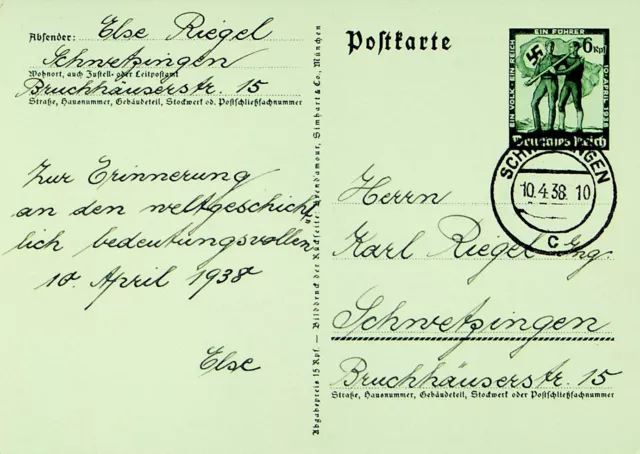 Absender: Else Riegel
Schwetzingen
Wohnort, auch Zustell- oder Leitpostamt
Bruchhäuserstr. 15
Straße, Hausnummer, Gebäudeteil, Stockwerk od. Postschließfachnummer
Zur Erinnerung
an den weltgeschicht
lich bedeutungsvollen
10. April 1938
Else
Abgabepreis 15 Rpf. — Bilddruck der Rückseite: Brend'amour, Simhart & Co., München
Postkarte
EIN VOLK · EIN REICH
EIN FÜHRER
10. APRIL 1938
6 Rpf
Deutsches Reich
SCHWETZINGEN
10.4.38. 10
C
Herrn
Karl Riegel Ing.
Schwetzingen
Bruchhäuserstr. 15
Straße, Hausnummer, Gebäudeteil, Stockwerk oder Postschließfachnummer